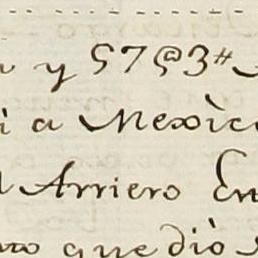 y 57@3#
a Mexico
Arriero En
que diò